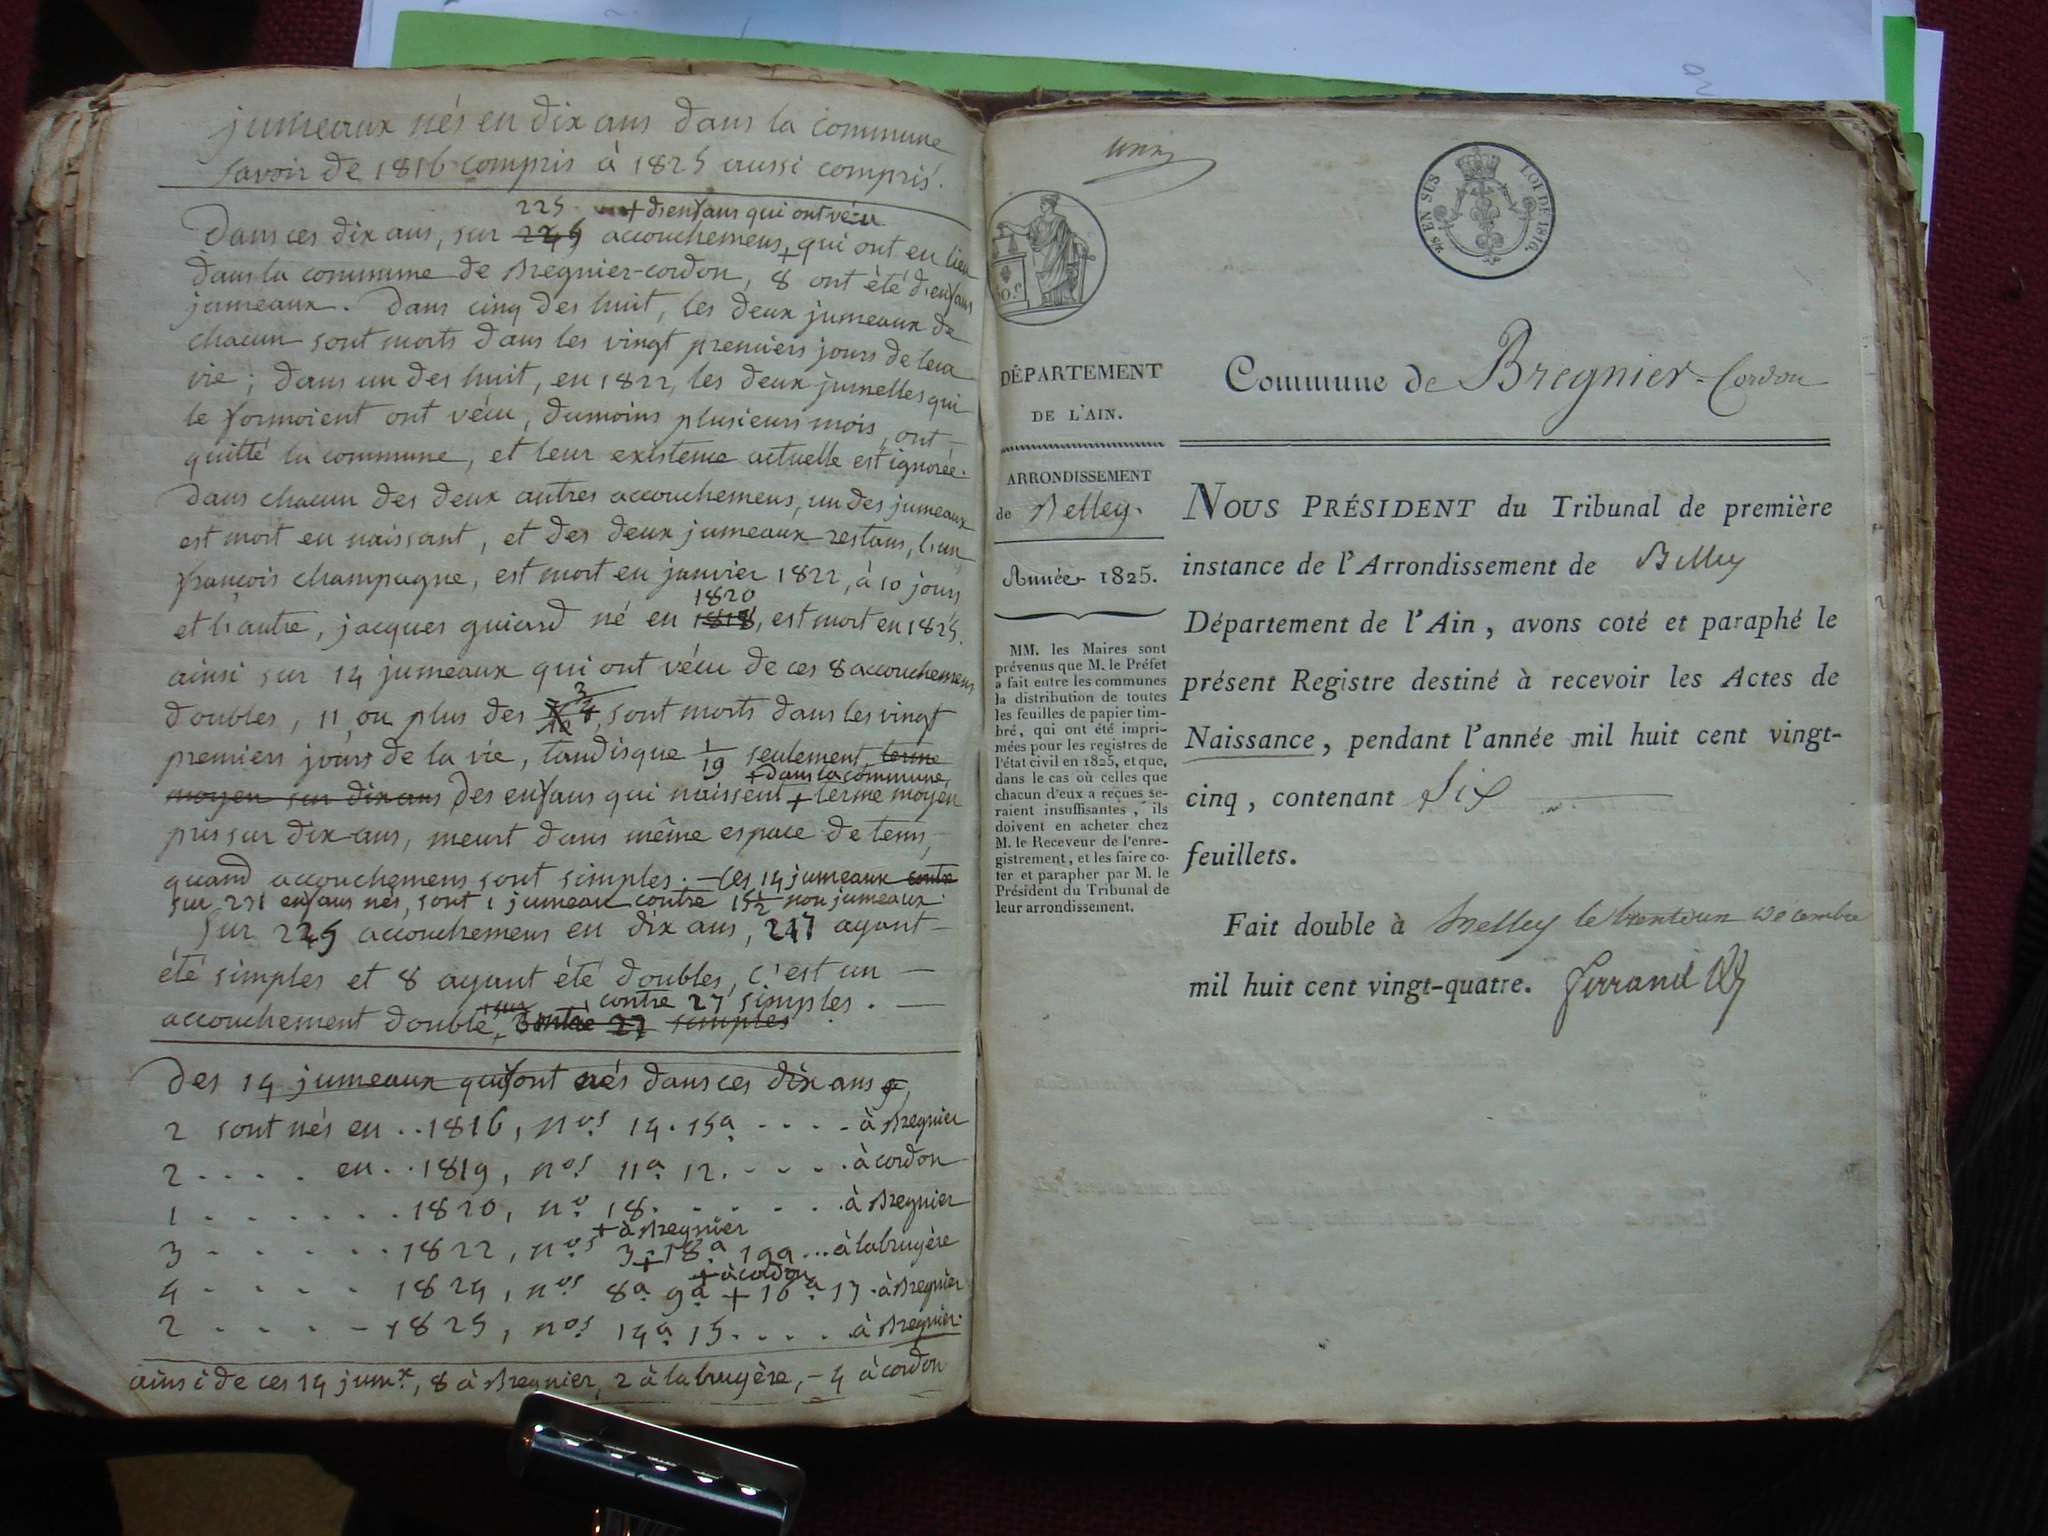 jumeaux nés en dix ans dans la commune
savoir de 1816 compris à 1825 aussi compris.
225 + d'enfans qui ont vécu
Dans ces dix ans, sur accouchemens, + qui ont eu lieu
dans la commune de Bregnier-cordon, 8 ont été d'enfans
jumeaux. Dans cinq des huit, les deux jumeaux de
chacun sont morts dans les vingt premiers jours de leur
vie ; dans un des huit, en 1822, les deux jumelles qui
le formoient ont vécu, dumoins plusieurs mois, ont
quitté la commune, et leur existence actuelle est ignorée.
Dans chacun des deux autres accouchemens, un des jumeaux
est mort en naissant, et des deux jumeaux restans, l'un,
françois champagne, est mort en janvier 1822, à 10 jours
1820
et l'autre, jacques guiard né en 1818, est mort en 1825.
ainsi sur 14 jumeaux qui ont vécu de ces 8 accouchemens
doubles, 11, ou plus des 3/4, sont morts dans les vingt
premiers jours de la vie, tandisque 1/19 seulement, terme
+ dans la commune,
moyen sur dix ans des enfans qui naissent + terme moyen
pris sur dix ans, meurt dans même espace de tems,
quand accouchemens sont simples. — Ces 14 jumeaux contre
sur 231 enfans nés, sont 1 jumeau contre 15 1/2 non jumeaux.
Sur 225 accouchemens en dix ans, 217 ayant
été simples et 8 ayant été doubles, c'est un
contre 27 simples.
accouchement double, contre 27 simples
Des 14 jumeaux qui sont nés dans ces dix ans,
2 sont nés en .. 1816, nos. 14. 15a . . . . à Bregnier
2 . . . . en . . 1819, nos 11a 12. . . . . à cordon
1 . . . . . . . 1820, no. 18. . . . . . . à Bregnier
+ à Bregnier
3 . . . . . . 1822, nos 3 + 18a 19a ... à labruyère
+ à cordon
4 . . . . . 1824, nos 8a 9a + 16a 17 . à Bregnier
2 . . . . 1825, nos 14a 15. . . . à Bregnier.
ainsi de ces 14 jumx, 8 à Bregnier, 2 à labruyère, – 4 à cordon
EN SUS LOI DE 1816.
DÉPARTEMENT
DE L'AIN.
ARRONDISSEMENT
de Belley.
Année 1825.
MM. les Maires sont
prévenus que M. le Préfet
a fait entre les communes
la distribution de toutes
les feuilles de papier tim-
bré, qui ont été impri-
mées pour les registres de
l'état civil en 1825, et que,
dans le cas où celles que
chacun d'eux a reçues se-
raient insuffisantes, ils
doivent en acheter chez
M. le Receveur de l'enre-
gistrement, et les faire co-
ter et parapher par M. le
Président du Tribunal de
leur arrondissement.
Commune de Bregnier-Cordon
NOUS PRÉSIDENT du Tribunal de première
instance de l'Arrondissement de Belley
Département de l'Ain, avons coté et paraphé le
présent Registre destiné à recevoir les Actes de
Naissance, pendant l'année mil huit cent vingt-
cinq, contenant Six
feuillets.
Fait double à Belley le trente un Décembre
mil huit cent vingt-quatre. Ferrand